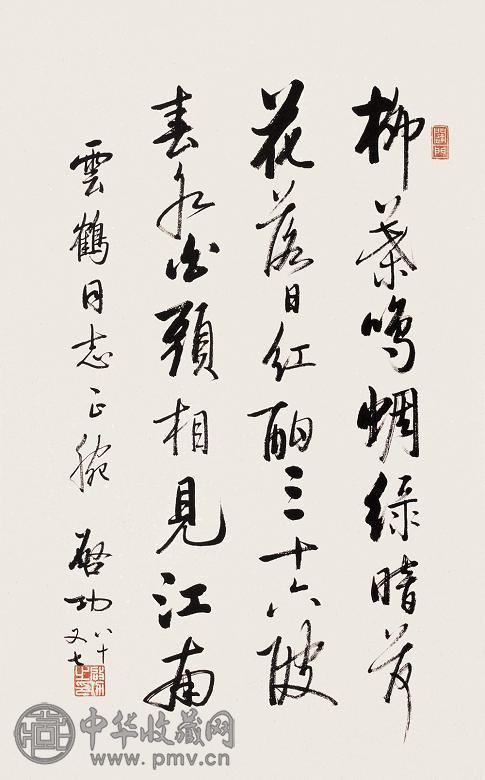 柳葉鳴蜩綠暗荷
花落日紅酣三十六陂
春水白頭相見江南
雲鶴同志正腕 啓功 八十又七
中华收藏网
www.pmv.cn